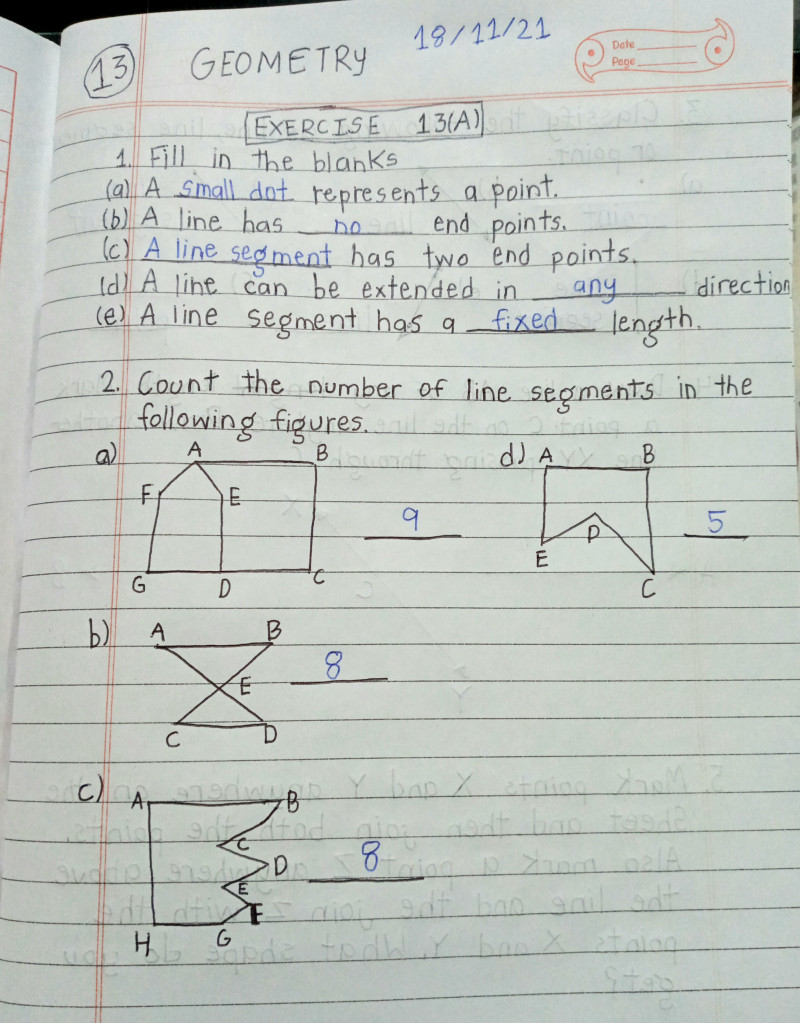 18/11/21
13 GEOMETRY
Date
Page
EXERCISE 13(A)
1. Fill in the blanks
(a) A small dot represents a point.
(b) A line has no end points.
(c) A line segment has two end points.
(d) A line can be extended in any direction
(e) A line segment has a fixed length.
2. Count the number of line segments in the
following figures.
a) A B F E G D C 9
d) A B E D C 5
b) A B E C D 8
c) A B C D E F G H 8